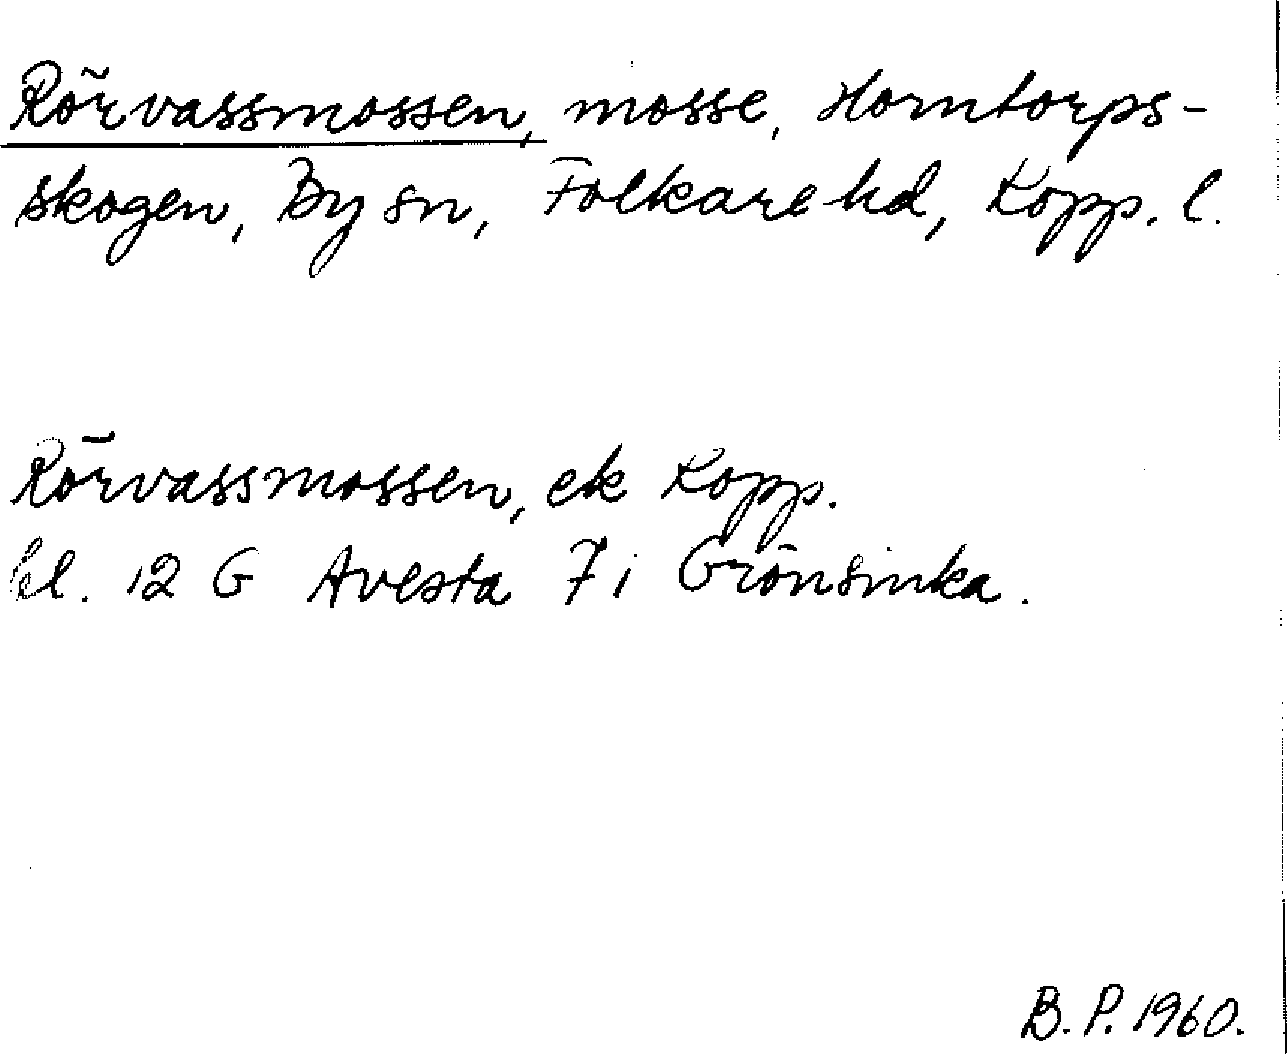 Rörvassmossen, mosse, Horntorps-
skogen, By sn, Folkare hd, Kopp. l.
Rörvassmossen, ek Kopp.
bl. 12 G Avesta 7 i Grönsinka.
B. P. 1960.